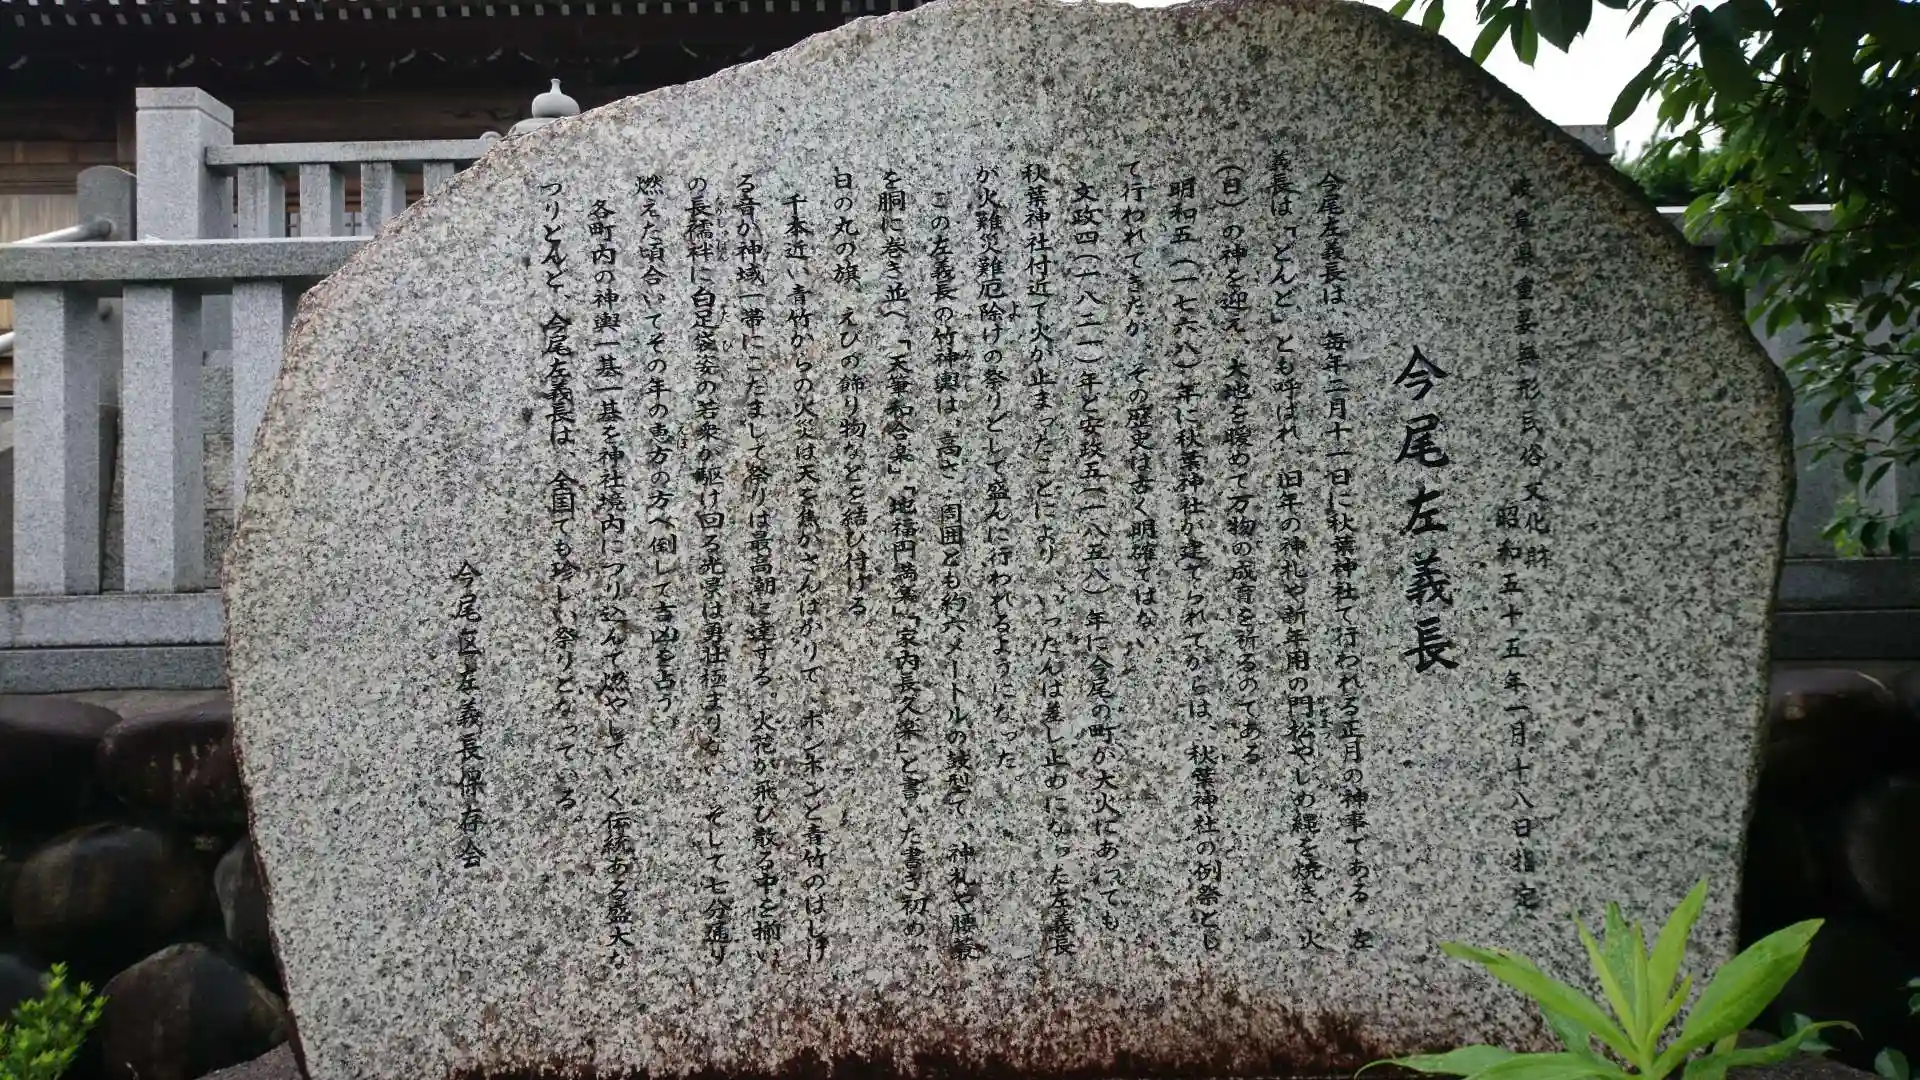 岐阜県重要無形民俗文化財
昭和五十五年一月十八日指定
今尾左義長
今尾左義長は、毎年二月十一日に秋葉神社で行われる正月の神事である。左
義長は「どんど」とも呼ばれ、旧年の神札や新年用の門松やしめ縄を焼き、火
(日)の神を迎え、大地を暖めて万物の成育を祈るのである。
明和五(一七六八)年に秋葉神社が建てられてからは、秋葉神社の例祭とし
て行われてきたが、その歴史は古く明確ではない。
文政四(一八二一)年と安政五(一八五八)年に今尾の町が大火にあっても、
秋葉神社付近で火が止まったことにより、いったんは差し止めになった左義長
が火難災難厄除けの祭りとして盛んに行われるようになった。
この左義長の竹神輿は、高さ、周囲とも約六メートルの鼓型で、神札や腰蓑
を胴に巻き並べ、「天筆和合楽」「地福円満楽」「家内長久楽」と書いた書き初め、
日の丸の旗、えびの飾り物などを結び付ける。
千本近い青竹からの火災は天を焦がさんばかりで、ポンポンと青竹のはじけ
る音が神域一帯にこだまして祭りは最高潮に達する。火花が飛び散る中を揃い
の長襦袢に白足袋姿の若衆が駆け回る光景は勇壮極まりない。そして七分通り
燃えた頃合いでその年の恵方の方へ倒して吉凶を占う。
各町内の神輿一基一基を神社境内につり込んで燃やしていく伝統ある盛大な
つりどんど、今尾左義長は、全国でも珍しい祭りとなっている。
今尾区左義長保存会